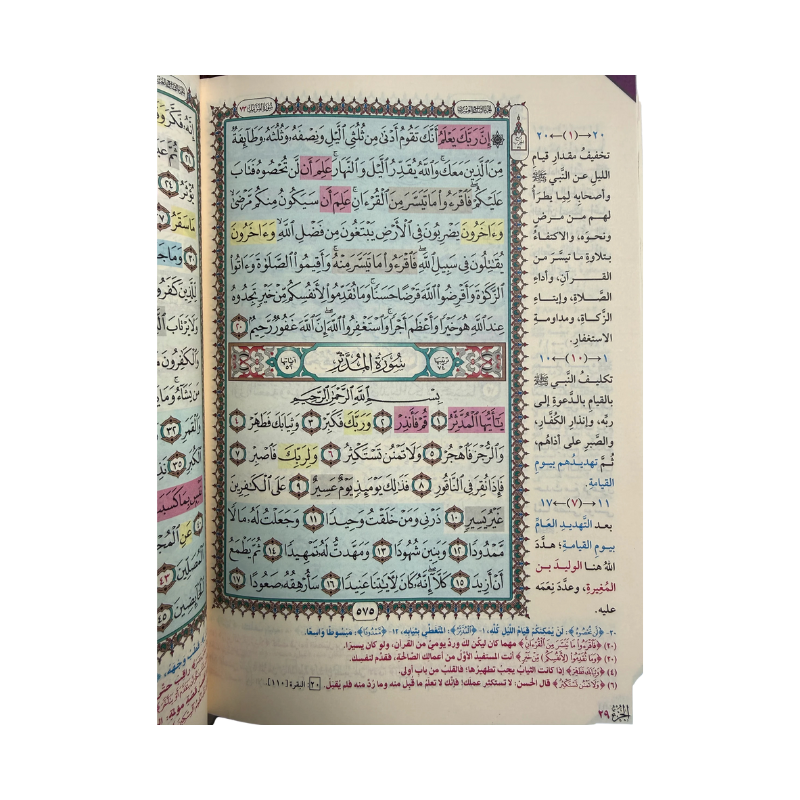 سُورَةُ المُزَّمِّل ٧٣
۞ إِنَّ رَبَّكَ يَعْلَمُ أَنَّكَ تَقُومُ أَدْنَىٰ مِن ثُلُثَيِ ٱلَّيْلِ وَنِصْفَهُۥ وَثُلُثَهُۥ وَطَآئِفَةٌ
مِّنَ ٱلَّذِينَ مَعَكَ ۚ وَٱللَّهُ يُقَدِّرُ ٱلَّيْلَ وَٱلنَّهَارَ ۚ عَلِمَ أَن لَّن تُحْصُوهُ فَتَابَ
عَلَيْكُمْ ۖ فَٱقْرَءُوا۟ مَا تَيَسَّرَ مِنَ ٱلْقُرْءَانِ ۚ عَلِمَ أَن سَيَكُونُ مِنكُم مَّرْضَىٰ ۙ
وَءَاخَرُونَ يَضْرِبُونَ فِى ٱلْأَرْضِ يَبْتَغُونَ مِن فَضْلِ ٱللَّهِ ۙ وَءَاخَرُونَ
يُقَـٰتِلُونَ فِى سَبِيلِ ٱللَّهِ ۖ فَٱقْرَءُوا۟ مَا تَيَسَّرَ مِنْهُ ۚ وَأَقِيمُوا۟ ٱلصَّلَوٰةَ وَءَاتُوا۟
ٱلزَّكَوٰةَ وَأَقْرِضُوا۟ ٱللَّهَ قَرْضًا حَسَنًا ۚ وَمَا تُقَدِّمُوا۟ لِأَنفُسِكُم مِّنْ خَيْرٍ تَجِدُوهُ
عِندَ ٱللَّهِ هُوَ خَيْرًا وَأَعْظَمَ أَجْرًا ۚ وَٱسْتَغْفِرُوا۟ ٱللَّهَ ۖ إِنَّ ٱللَّهَ غَفُورٌ رَّحِيمٌۢ ٢٠
ترتيبها ٧٤ سُورَةُ المُدَّثِّر آياتها ٥٦
بِسْمِ ٱللَّهِ ٱلرَّحْمَـٰنِ ٱلرَّحِيمِ
يَـٰٓأَيُّهَا ٱلْمُدَّثِّرُ ١ قُمْ فَأَنذِرْ ٢ وَرَبَّكَ فَكَبِّرْ ٣ وَثِيَابَكَ فَطَهِّرْ ٤
وَٱلرُّجْزَ فَٱهْجُرْ ٥ وَلَا تَمْنُن تَسْتَكْثِرُ ٦ وَلِرَبِّكَ فَٱصْبِرْ ٧
فَإِذَا نُقِرَ فِى ٱلنَّاقُورِ ٨ فَذَٰلِكَ يَوْمَئِذٍ يَوْمٌ عَسِيرٌ ٩ عَلَى ٱلْكَـٰفِرِينَ
غَيْرُ يَسِيرٍ ١٠ ذَرْنِى وَمَنْ خَلَقْتُ وَحِيدًا ١١ وَجَعَلْتُ لَهُۥ مَالًا
مَّمْدُودًا ١٢ وَبَنِينَ شُهُودًا ١٣ وَمَهَّدتُّ لَهُۥ تَمْهِيدًا ١٤ ثُمَّ يَطْمَعُ
أَنْ أَزِيدَ ١٥ كَلَّآ ۖ إِنَّهُۥ كَانَ لِـَٔايَـٰتِنَا عَنِيدًا ١٦ سَأُرْهِقُهُۥ صَعُودًا ١٧
٥٧٥
٢٠ ← (١) ← ٢٠
تخفيفُ مقدارِ قيامِ
الليلِ عن النَّبي ﷺ
وأصحابِه لِما يطرَأُ
لهم من مرضٍ
ونحوِه، والاكتفاءُ
بتلاوةِ ما تيسَّرَ من
القرآنِ، وأداءِ
الصَّلاةِ، وإيتاءِ
الزَّكاةِ، ومداومةِ
الاستغفارِ.
١ ← (١٠) ← ١٠
تكليفُ النَّبي ﷺ
بالقيامِ بالدَّعوةِ إلى
ربِّه، وإنذارِ الكُفَّارِ،
والصَّبرِ على أذاهُم،
ثُمَّ تهديدُهم بيومِ
القيامةِ.
١١ ← (٧) ← ١٧
بعد التَّهديدِ العَامِّ
بيومِ القيامةِ؛ هدَّدَ
اللهُ هنا الوليدَ بن
المُغيرةِ، وعدَّدَ نِعَمَه
عليه.
٢٠- ﴿لَّن تُحْصُوهُ﴾: لَنْ يمكنَكُم قيامُ اللَّيلِ كُلِّهِ، ١- ﴿ٱلْمُدَّثِّرُ﴾: المُتَغَطِّي بثيابِهِ، ١٢- ﴿مَّمْدُودًا﴾: مَبْسُوطًا وَاسِعًا.
(٢٠) ﴿فَٱقْرَءُوا۟ مَا تَيَسَّرَ مِنَ ٱلْقُرْءَانِ﴾ مهما كان ليكُن لك وِردٌ يوميٌّ من القرآنِ، ولو كان يسيرًا.
(٢٠) ﴿وَمَا تُقَدِّمُوا۟ لِأَنفُسِكُم مِّنْ خَيْرٍ﴾ أنت المستفيدُ الأوَّلُ من أعمالِك الصَّالحةِ، فقدِّم لنفسِك.
(٤) ﴿وَثِيَابَكَ فَطَهِّرْ﴾ إذا كانت الثِّيابُ يجبُ تطهيرُها؛ فالقلبُ من بابِ أولى.
(٦) ﴿وَلَا تَمْنُن تَسْتَكْثِرُ﴾ قال الحسن: لا تستكثرْ عملَك؛ فإنَّك لا تعلمُ ما قُبِلَ منه وما رُدَّ منه فلم يُقبَل. ٢٠: البقرة [١١٠].
الجُزءُ ٢٩